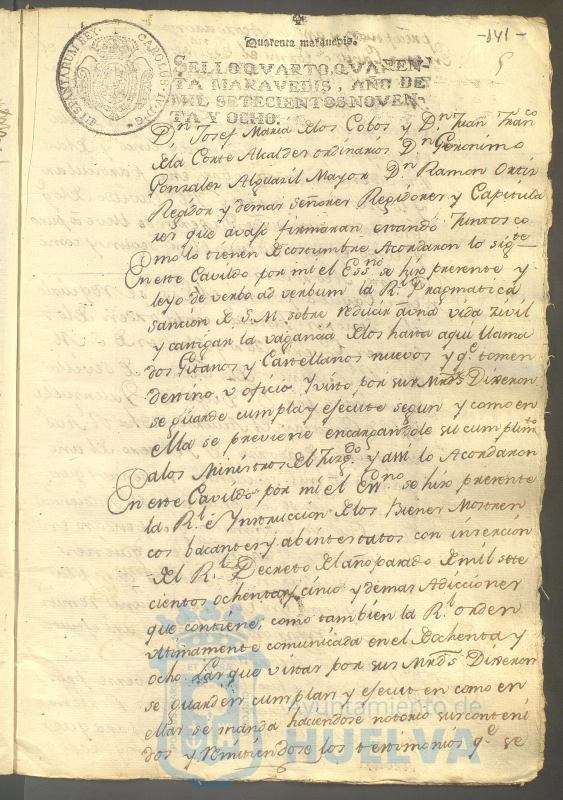 -141-
5
Quarenta maravedis.
HISPANIARUM REX CAROLUS IV D G
SELLO QVARTO, QVAREN-
TA MARAVEDIS, AÑO DE
MIL SETECIENTOS NOVEN-
TA Y OCHO.
Dn Josef Maria de los Cobos y Dn Juan Franco
de la Corte Alcaldes ordinarios Dn Geronimo
Gonzalez Alguazil Mayor, Dn Ramon Ortiz
Regidor y demas señores Regidores y Capitula
res que avajo firmaran estando Juntos co
mo lo tienen de costumbre Acordaron lo sigte
En este Cavildo por mi el Essno se hizo presente y
leyo de verbo ad verbum la Rl Pragmatica
sancion de S. M. sobre reducir a una vida zivil
y castigar la vagancia de los hasta aqui llama
dos Gitanos y Castellanos nuevos y qe tomen
destino, u oficio Y visto por sus Mrds Dixeron
se guarde cumpla y efecute segun y como en
ella se previene encargandole su cumplimto
a los Ministros del Juzgdo y assi lo Acordaron
En este Cavildo por mi el Esno se hizo presente
la Rl Instruccion de los bienes Mostren
cos bacantes y abintestatos con insercion
del Rl Decreto del año pasado de mil sete
cientos ochenta y cinco y demas Adicciones
que contiene, como tambien la Rl orden
ultimamente comunicada en el de ochenta y
ocho Las que vistas por sus Mrds Dixeron
se guarden cumplan y efecuten como en
ellas se manda haciendose notorio sus conteni
dos y remitiendose los testimonios qe se
Ayuntamiento de
HUELVA